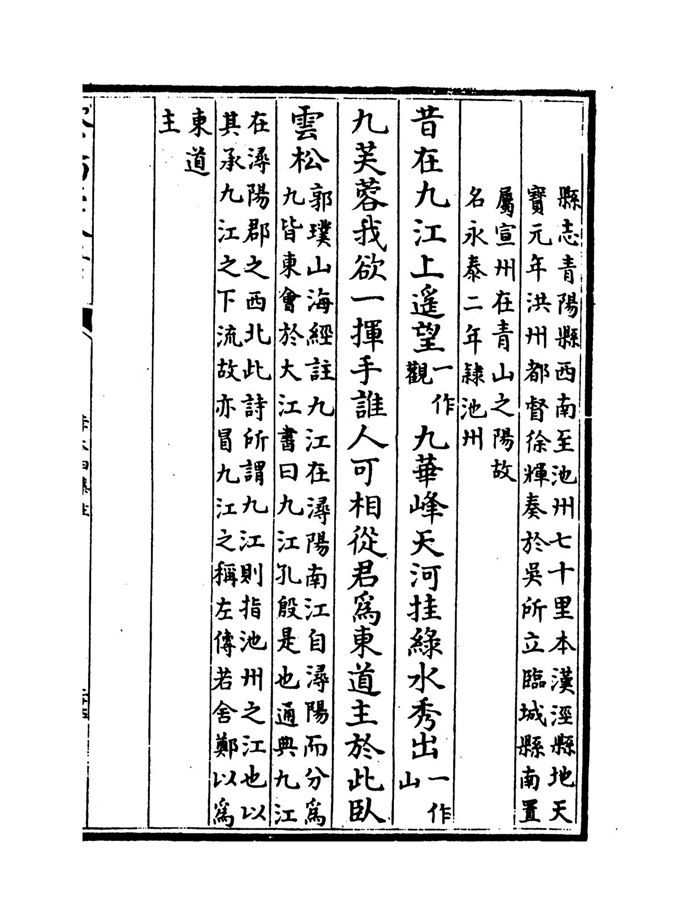 縣志青陽縣西南至池州七十里本漢涇縣地天
寶元年洪州都督徐輝奏於吳所立臨城縣南置
屬宣州在青山之陽故
名永泰二年隸池州
昔在九江上遥望一作觀九華峰天河挂綠水秀出一作山
九芙蓉我欲一揮手誰人可相從君爲東道主於此臥
雲松郭璞山海經註九江在潯陽南江自潯陽而分爲
九皆東會於大江書曰九江孔殷是也通典九江
在潯陽郡之西北此詩所謂九江則指池州之江也以
其承九江之下流故亦冒九江之稱左傳若舍鄭以爲
東道
主